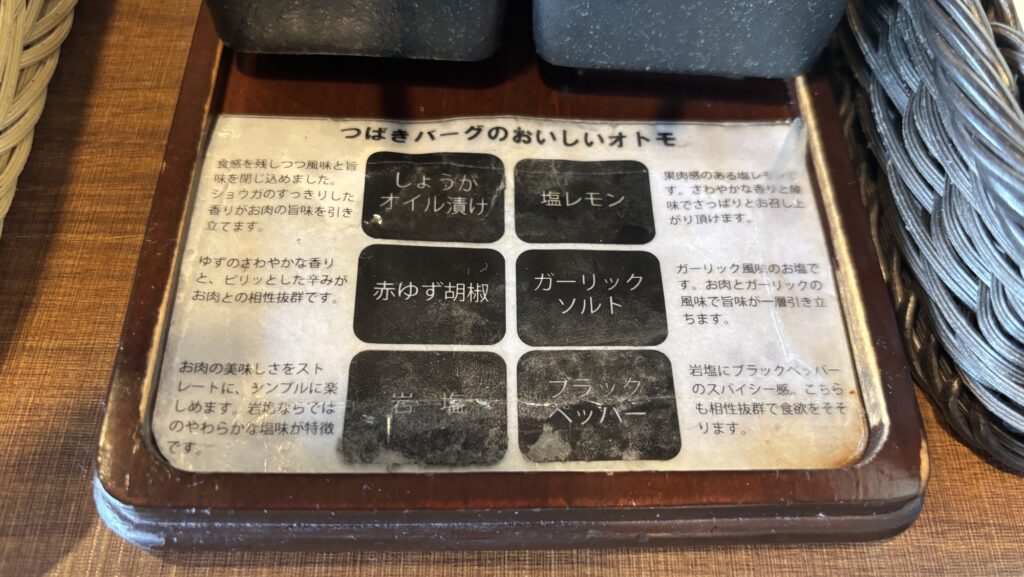 つばきバーグのおいしいオトモ
食感を残しつつ風味と旨
味を閉じ込めました。
ショウガのすっきりした
香りがお肉の旨味を引き
立てます。
しょうが
オイル漬け
塩レモン
果肉感のある塩レモンで
す。さわやかな香りと酸
味でさっぱりとお召し上
がり頂けます。
ゆずのさわやかな香り
と、ピリッとした辛みが
お肉との相性抜群です。
赤ゆず胡椒
ガーリック
ソルト
ガーリック風味のお塩で
す。お肉とガーリックの
風味で旨味が一層引き立
ちます。
お肉の美味しさをスト
レートに、シンプルに楽
しめます。岩塩ならでは
のやわらかな塩味が特徴
です。
岩 塩
ブラック
ペッパー
岩塩にブラックペッパー
のスパイシー感。こちら
も相性抜群で食欲をそそ
ります。